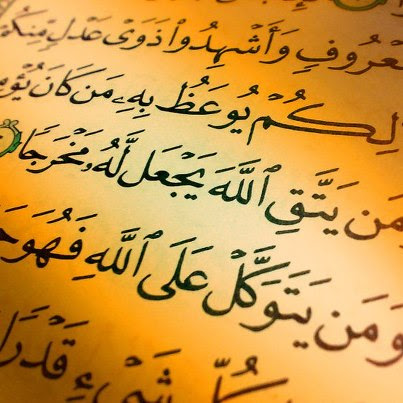 وَأَشْهِدُوا۟ ذَوَىْ عَدْلٍۢ مِّنكُمْ
يُوعَظُ بِهِۦ مَن كَانَ
وَمَن يَتَّقِ ٱللَّهَ يَجْعَل لَّهُۥ مَخْرَجًۭا
وَمَن يَتَوَكَّلْ عَلَى ٱللَّهِ فَهُوَ
قَدْرًۭا